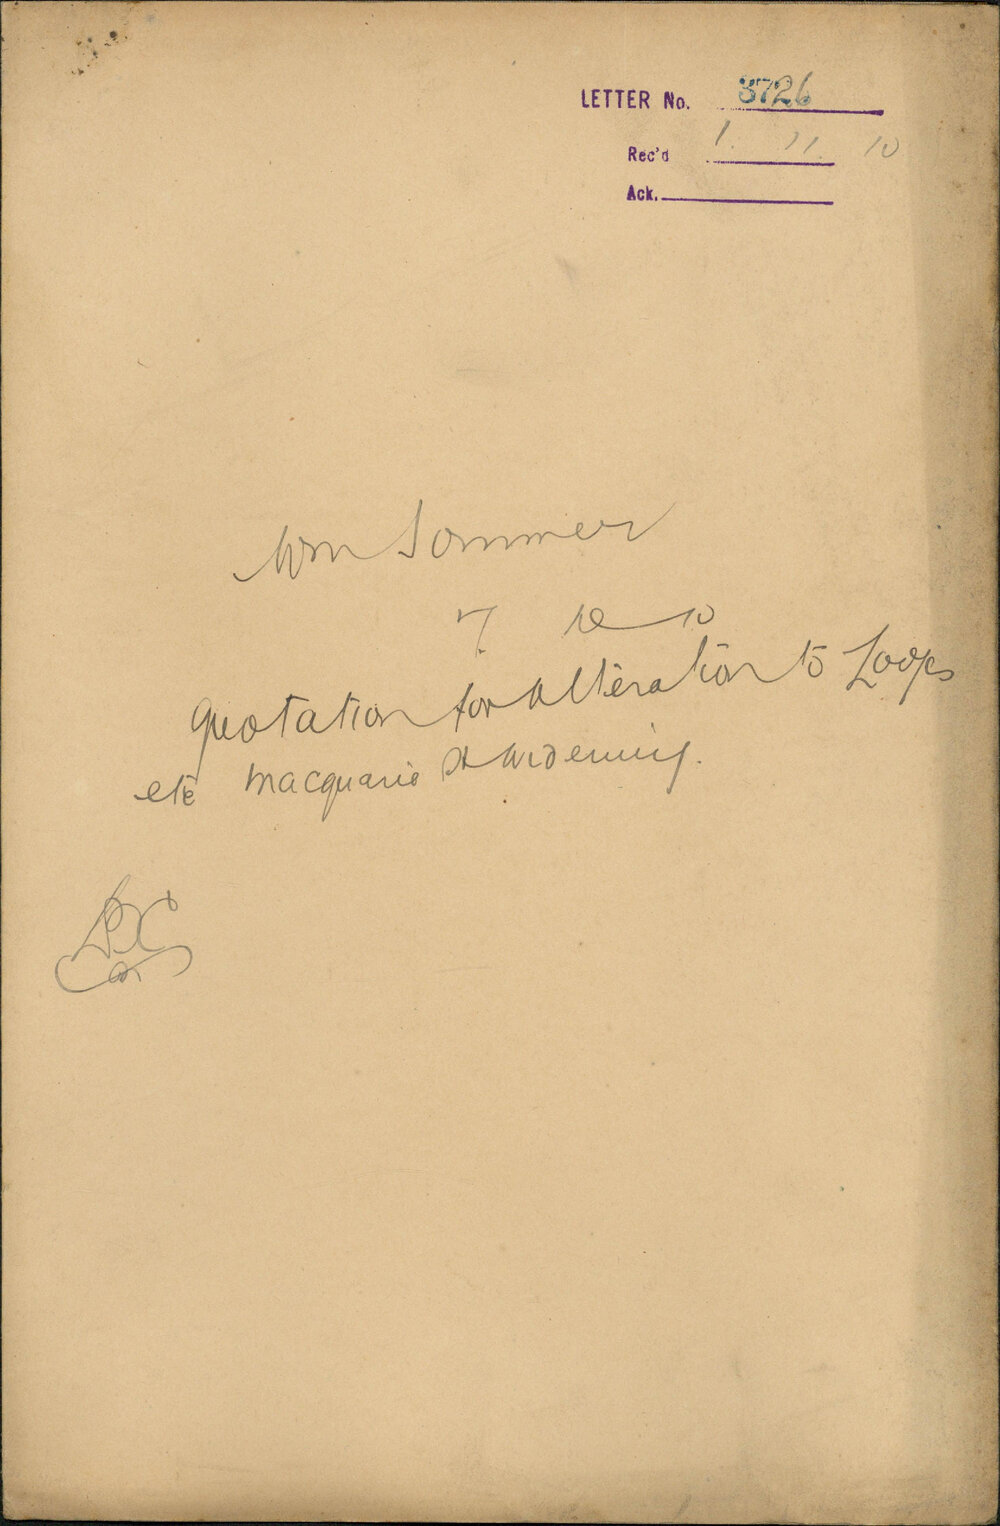 LETTER No. 3726
Rec'd 1. 11. 10
Ack.
Wm Sommer
7 10
Quotation for Alteration to Loops
etc Macquarie St Widening.